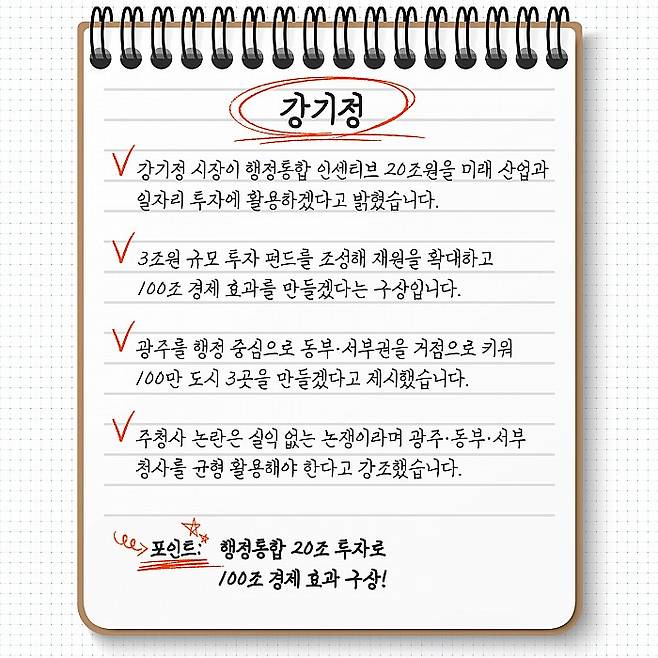 강기정
강기정 시장이 행정통합 인센티브 20조원을 미래 산업과
일자리 투자에 활용하겠다고 밝혔습니다.
3조원 규모 투자 펀드를 조성해 재원을 확대하고
100조 경제 효과를 만들겠다는 구상입니다.
광주를 행정 중심으로 동부·서부권을 거점으로 키워
100만 도시 3곳을 만들겠다고 제시했습니다.
주청사 논란은 실익 없는 논쟁이라며 광주·동부·서부
청사를 균형 활용해야 한다고 강조했습니다.
포인트: 행정통합 20조 투자로
100조 경제 효과 구상!